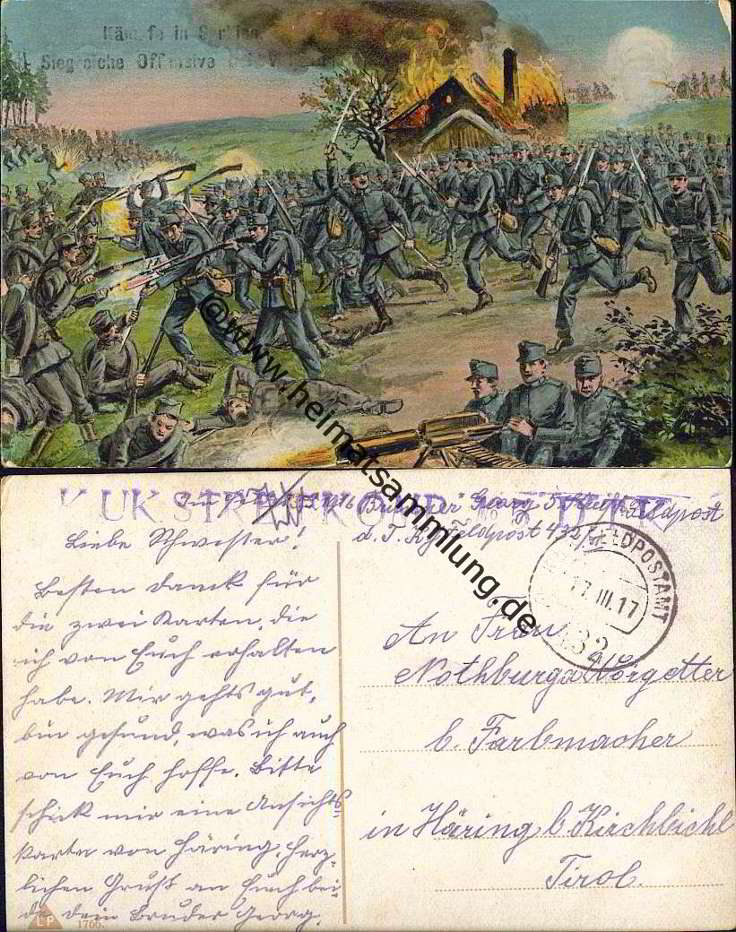 Kämpfe in Serbien
Siegreiche Offensive bei
©www.heimatsammlung.de
K UK
Georg Feldpost
d. T. K. Jg. Feldpost 432
FELDPOSTAMT
17.III.17
432
Liebe Schwester!
Besten Dank für
die zwei Karten, die
ich von Euch erhalten
habe. Mir gehts gut,
bin gesund, was ich auch
von Euch hoffe. Bitte
schick mir eine Ansichts-
karte von Häring. Herz-
lichen Gruß an Euch bei-
de dein Bruder Georg.
An Frau
Nothburga Noigetter
b. Farbmacher
in Häring b. Kirchbichl
Tirol.
LP
1766.